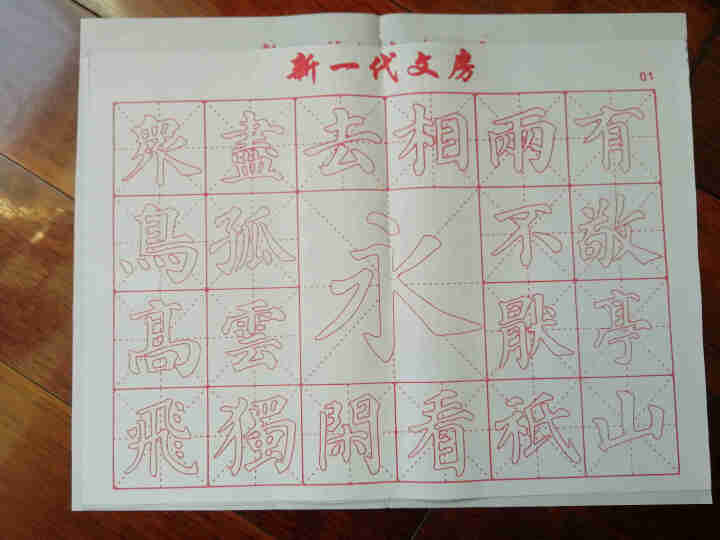 新一代文房
01
眾鳥髙飛
盡孤雲獨
去閑
永
相看
兩不猒祗
有敬亭山